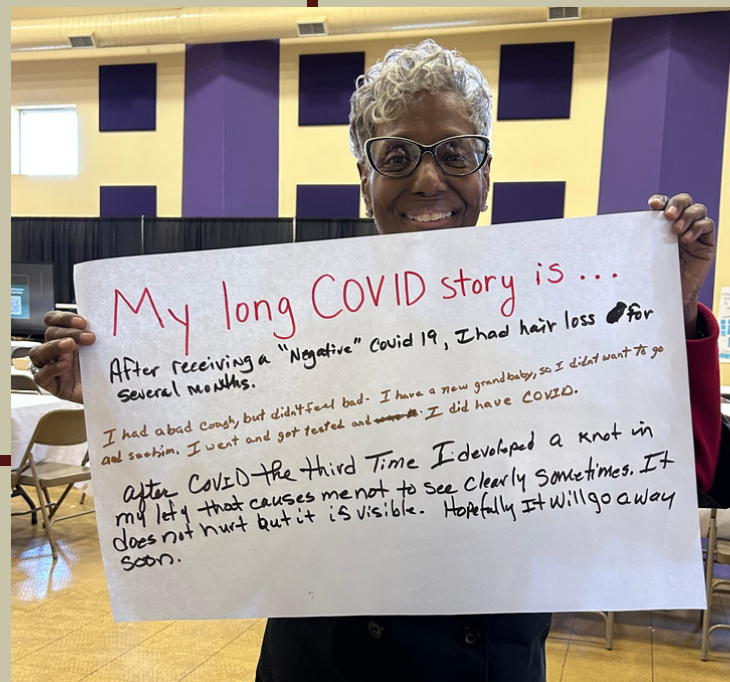 My long COVID story is ...
After receiving a "Negative" Covid 19, I had hair loss for
several months.
I had a bad cough, but didn't feel bad. I have a new grandbaby, so I didn't want to go
and see him. I went and got tested and I did have COVID.
after COVID the third Time I developed a knot in
my lefy that causes me not to see clearly sometimes. It
does not hurt but it is visible. Hopefully It will go away
soon.